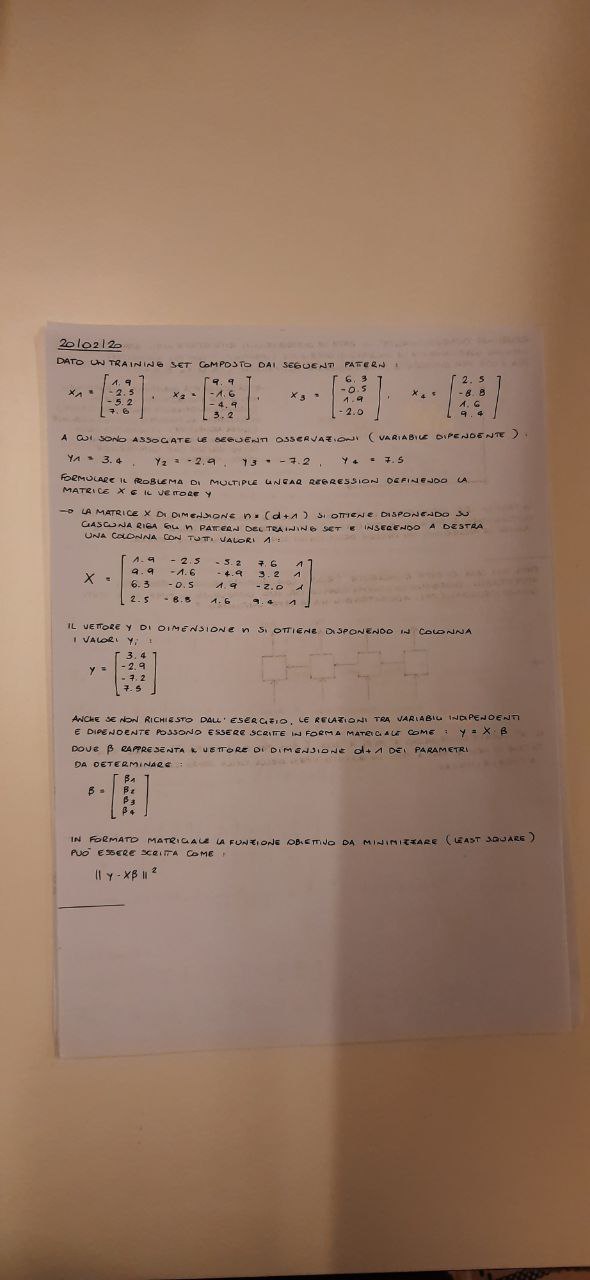 20/02/20
DATO UN TRAINING SET COMPOSTO DAI SEGUENTI PATTERN :
X1 = [1.9 -2.5 -5.2 7.6] , X2 = [9.9 -1.6 -4.9 3.2] , X3 = [6.3 -0.5 1.9 -2.0] , X4 = [2.5 -8.8 1.6 9.4]
A CUI SONO ASSOCIATE LE SEGUENTI OSSERVAZIONI ( VARIABILE DIPENDENTE ) :
Y1 = 3.4 , Y2 = -2.9 , Y3 = -7.2 , Y4 = 7.5
FORMULARE IL PROBLEMA DI MULTIPLE LINEAR REGRESSION DEFINENDO LA
MATRICE X E IL VETTORE Y
→ LA MATRICE X DI DIMENSIONE n × (d+1) SI OTTIENE DISPONENDO SU
CIASCUNA RIGA GLI n PATTERN DEL TRAINING SET E INSERENDO A DESTRA
UNA COLONNA CON TUTTI VALORI 1 :
1.9 -2.5 -5.2 7.6 1
9.9 -1.6 -4.9 3.2 1
X = 6.3 -0.5 1.9 -2.0 1
2.5 -8.8 1.6 9.4 1
IL VETTORE Y DI DIMENSIONE n SI OTTIENE DISPONENDO IN COLONNA
I VALORI Yi :
y = [3.4 -2.9 -7.2 7.5]
ANCHE SE NON RICHIESTO DALL'ESERCIZIO, LE RELAZIONI TRA VARIABILI INDIPENDENTI
E DIPENDENTE POSSONO ESSERE SCRITTE IN FORMA MATRICIALE COME : y = X · β
DOVE β RAPPRESENTA IL VETTORE DI DIMENSIONE d+1 DEI PARAMETRI
DA DETERMINARE :
β = [β1 β2 β3 β4]
IN FORMATO MATRICIALE LA FUNZIONE OBIETTIVO DA MINIMIZZARE ( LEAST SQUARE )
PUÒ ESSERE SCRITTA COME :
|| y - Xβ ||²